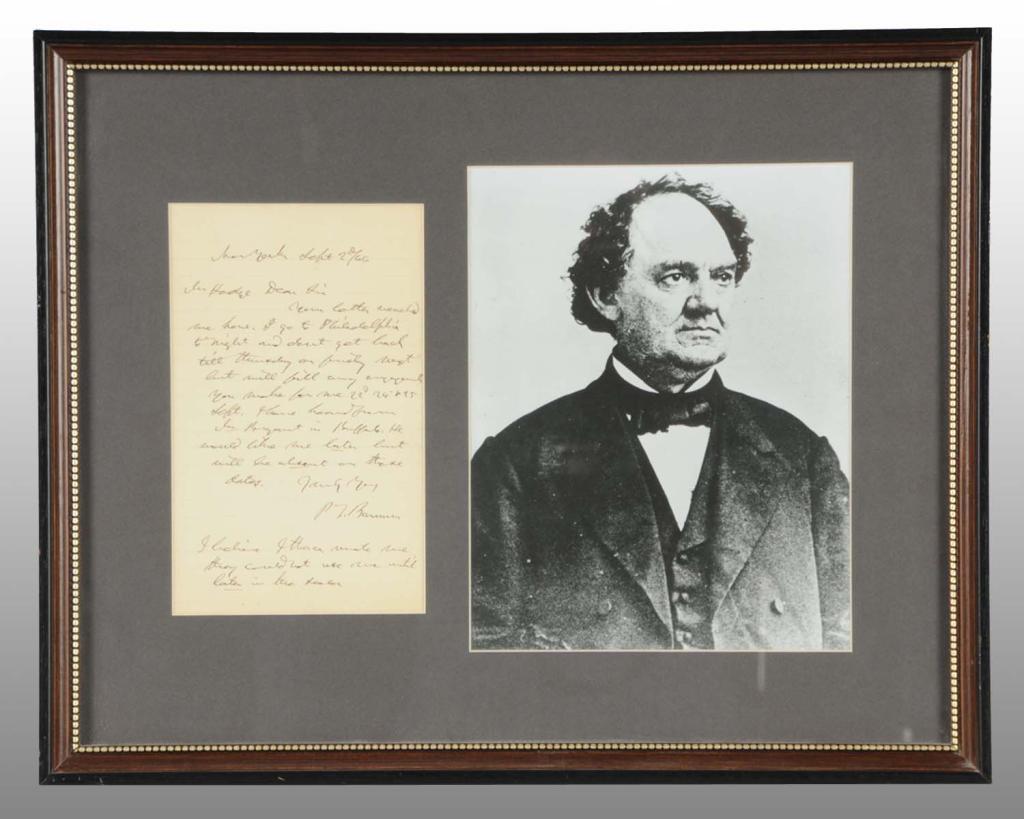 New York Sept 2d/66
Mr Hodge Dear Sir
Your letter reached
me here. I go to Philadelphia
to night and dont get back
till thursday or friday next
but will fill any engagements
you make for me 22d 24 & 25
Sept. I have heard from
Mr Bryant in Buffalo. He
would like me later but
will be absent on those
dates. Truly Yours
P. T. Barnum
I believe Ithaca wrote me
they could not use me until
later in the season